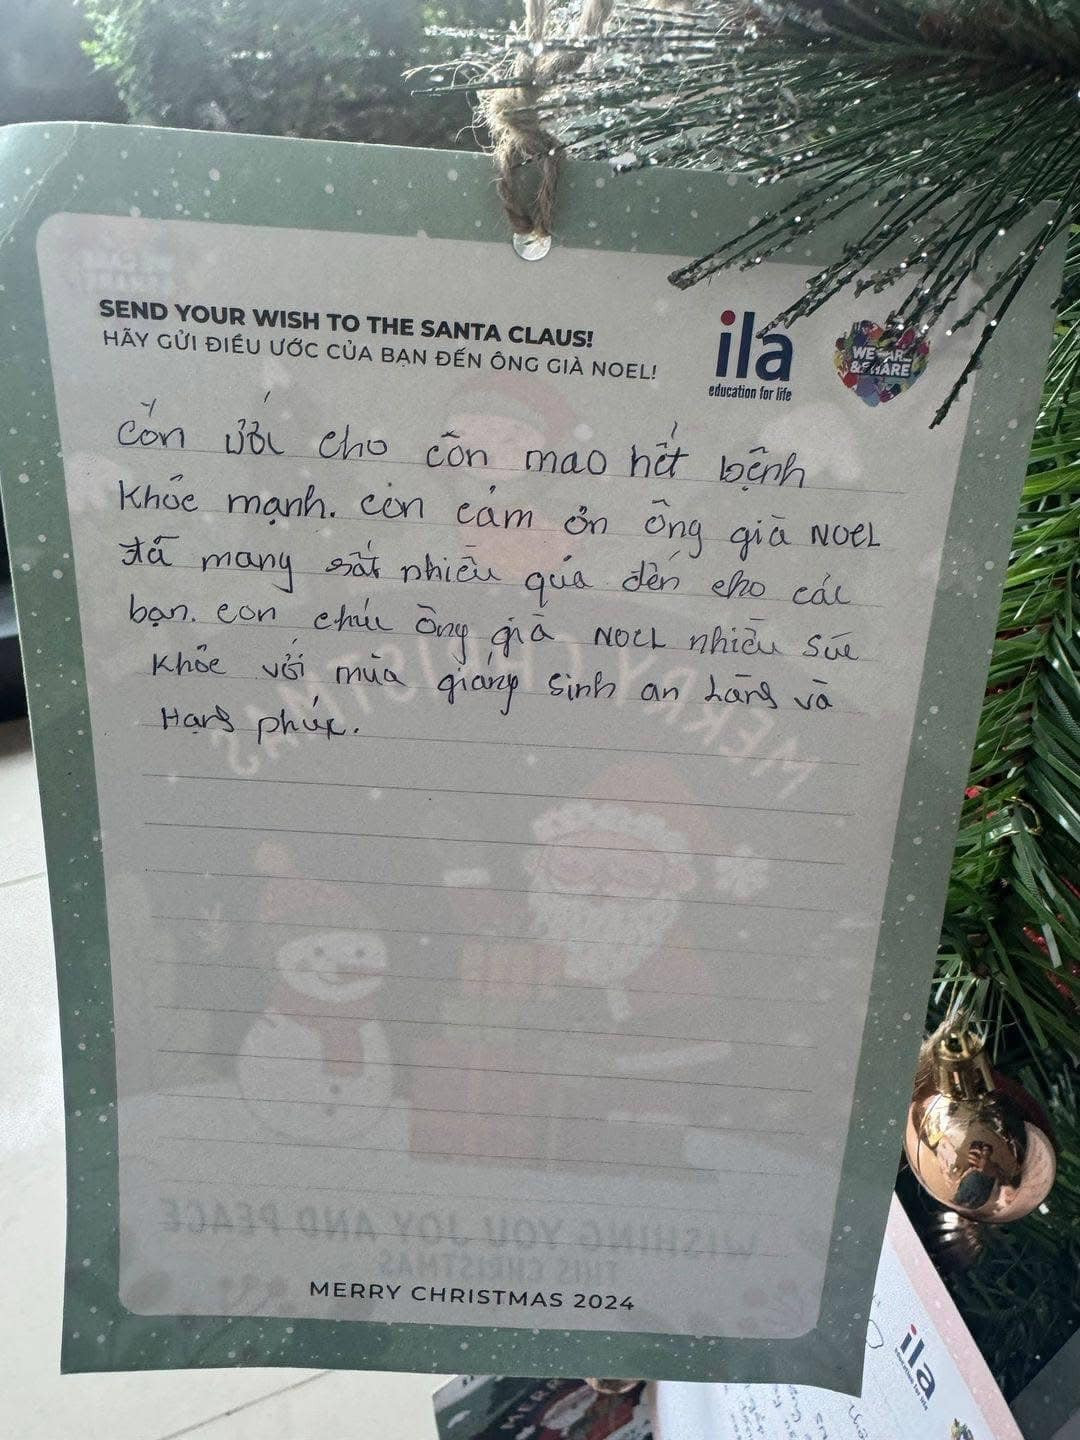 SEND YOUR WISH TO THE SANTA CLAUS!
HÃY GỬI ĐIỀU ƯỚC CỦA BẠN ĐẾN ÔNG GIÀ NOEL!
ila
education for life
WE CARE
& SHARE
Con ước cho con mao hết bệnh
khỏe mạnh. con cảm ơn ông già NOEL
đã mang rất nhiều quà đến cho các
bạn. con chúc ông già NOEL nhiều sức
khỏe với mùa giáng sinh an Lãng và
Hạng phúc.
MERRY CHRISTMAS
WISHING YOU JOY AND PEACE
THIS CHRISTMAS
MERRY CHRISTMAS 2024
ila
education for life